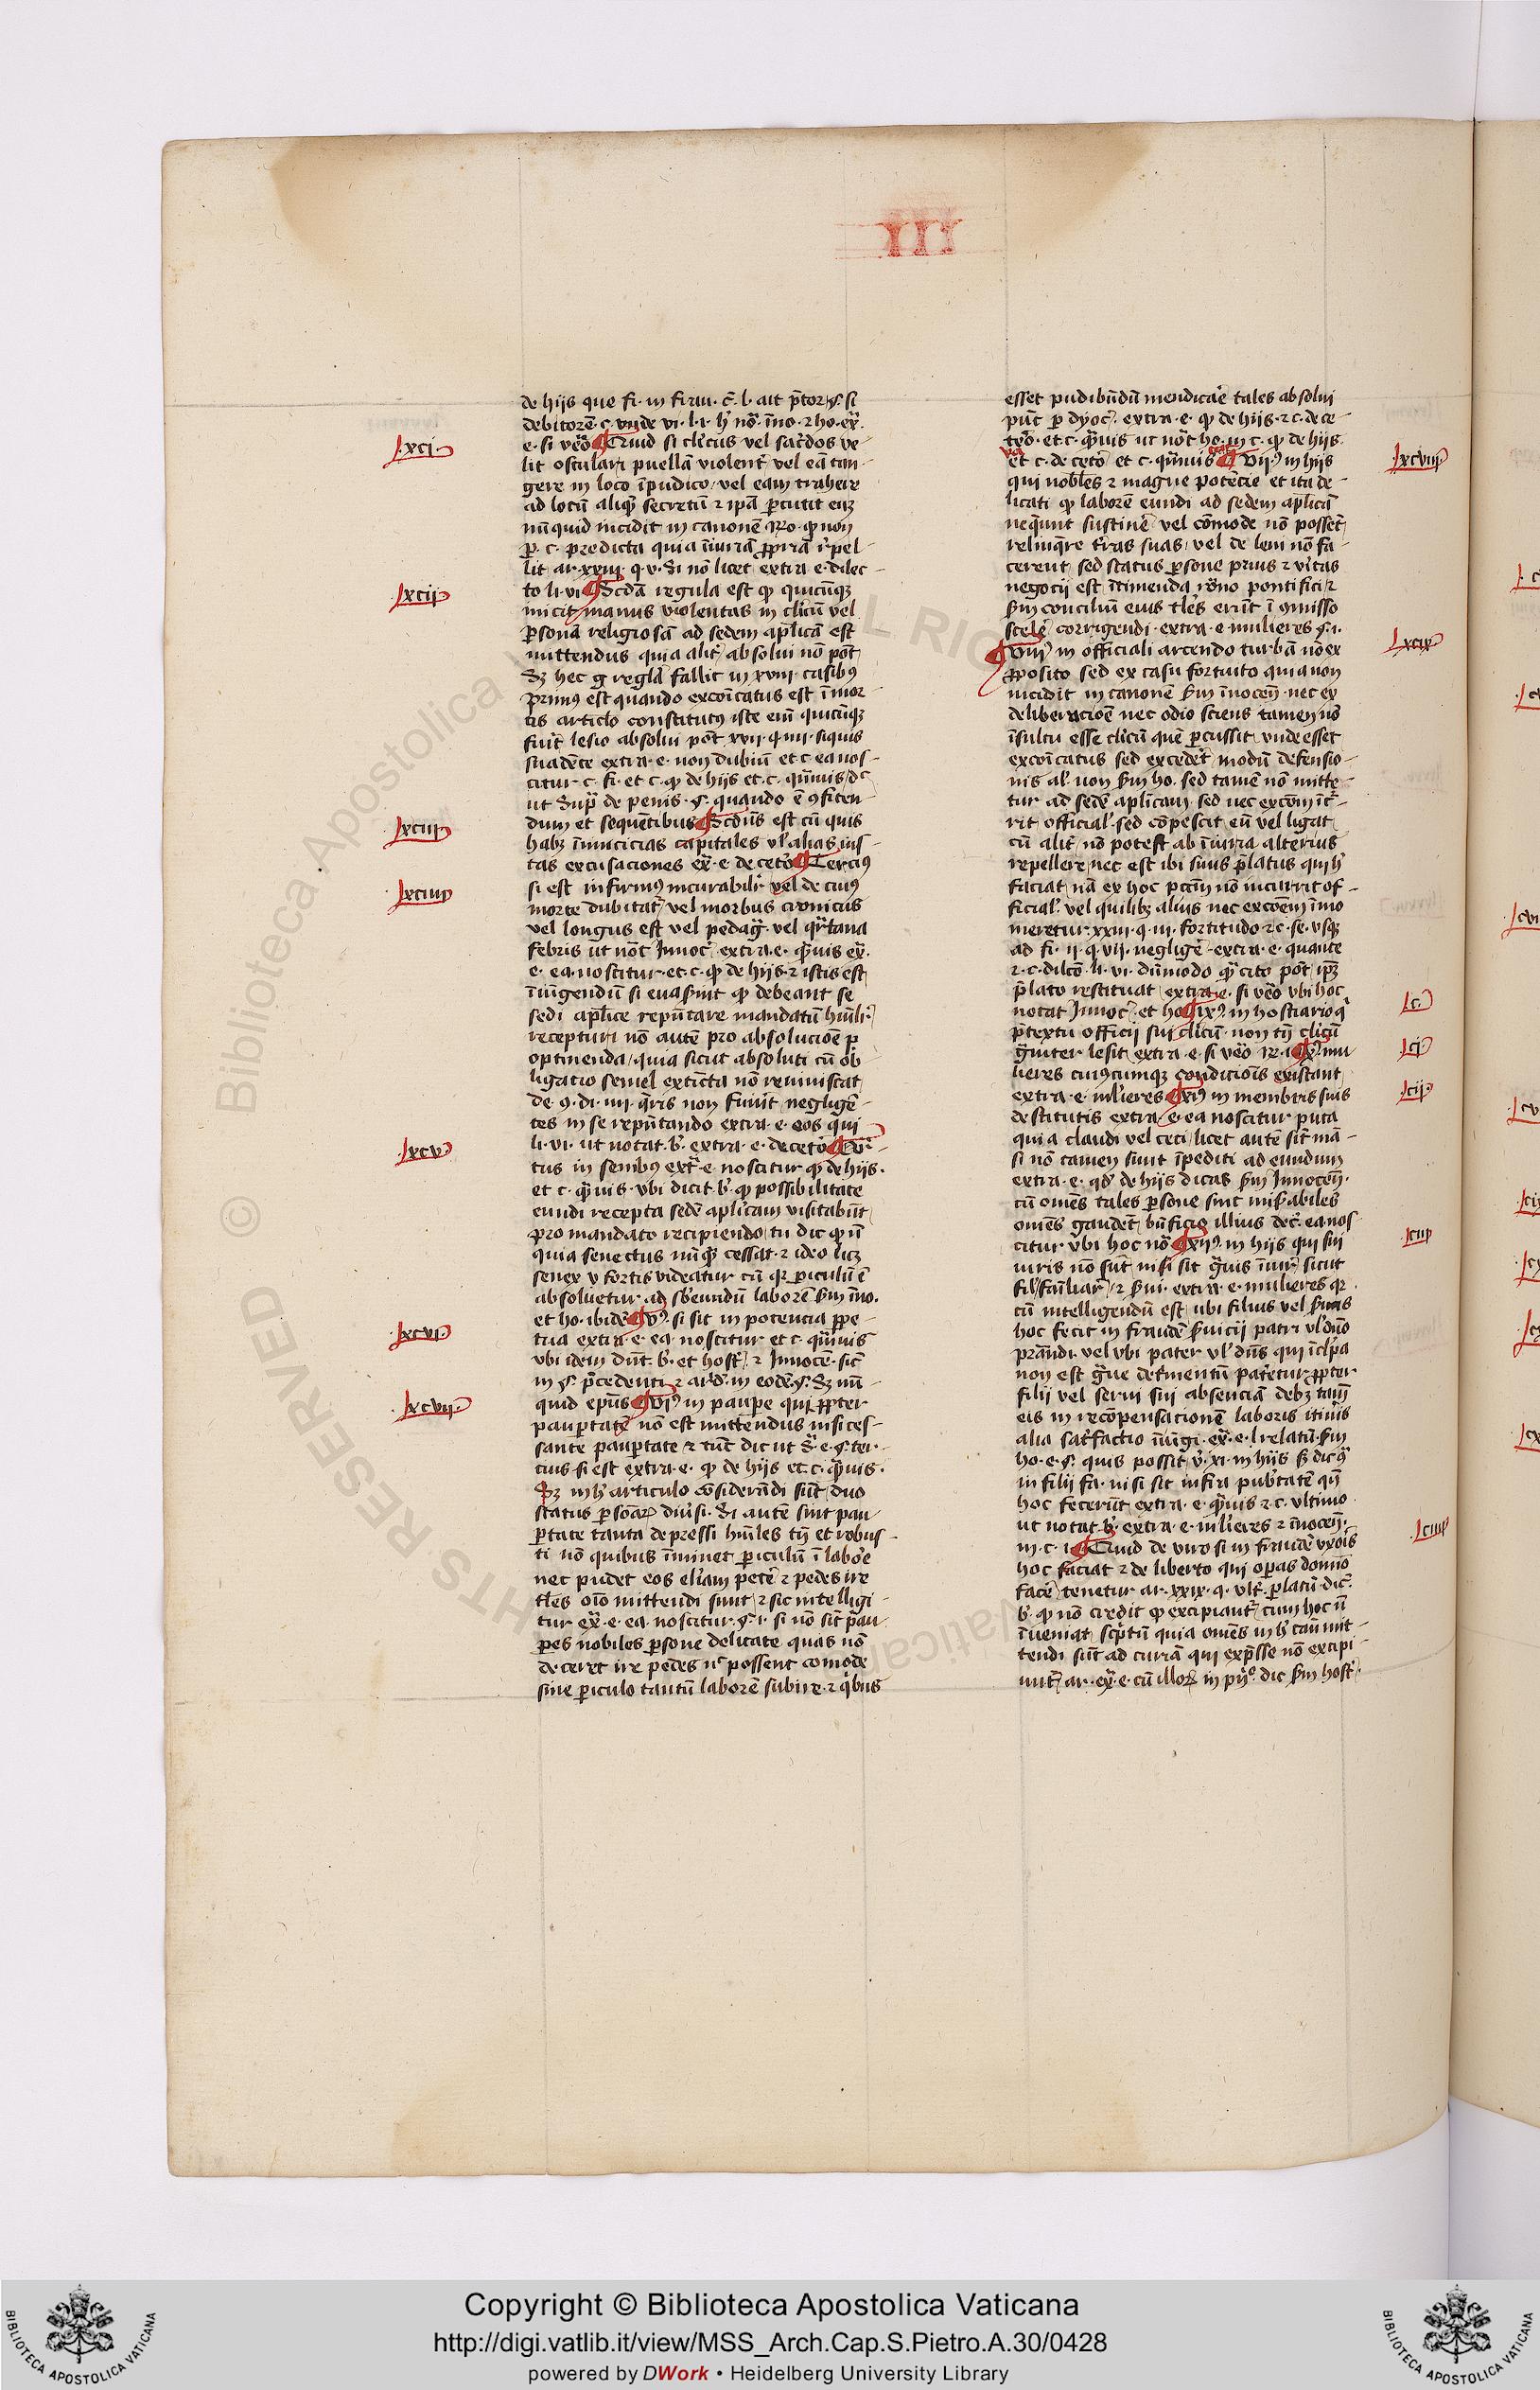 III
de hijs que fi. in frau. c̄. l. ait p̄tor. §. si
debitorē. c. vnde vi. l. i. h' nō. īno. 2 ho. ex̄.
e. si vēo ¶ Quid si cl'icus vel sac̄dos ve-
lxcj.
lit osculari puellā violent̄ vel eā tan-
gere in loco īpudico, vel eam trahere
ad locū aliq̄ secretū 2 ip̄a ꝑcutit eū
nūquid incidit in canonē Rͦo. ꝙ non
ꝑ. c. predicta quia īiuriā ꝓpriā r̄pel-
lit ar. xxiij. q. v. si nō licet extra e. dilec-
to li. vi ¶ Scd̄a regula est ꝙ quicūqꝫ
lxcij
micit manus violentas in cl'icū vel
ꝑsonā religiosā ad sedem ap̄licā est
mittendus quia alit̄ absolui nō pōt
Sꝫ hec g regl'a fallit in xviij casibꝰ
primꝰ est quando excōicatus est ī mor-
tis articlo constitutꝰ iste eni quicūqꝫ
fuit lesio absolui pōt xvij. q. iiij. siquis
suadēte extra. e. non dubiū et c. ea nos-
citur c. fi. et c. ꝙ de hijs et. c. quāuis
ut sup̄ de penis. §. quando ē ꝯfiten-
dum et sequētibus ¶ Scd̄us est cū quis
lxciij
habꝫ īimicicias capitales vl' alias ius-
tas excusaciones ex̄. e. de cet̄o ¶ Terciꝰ
si est infirmꝰ incurabilī vel de cuiꝰ
lxciiij
morte dubitat̄ vel morbus cronicus
vel longus est vel pedaḡ. vel qr̄tana
febris ut nōt Innoc̄. extra. e. q̄uis ex̄.
e. ea noscitur. et. c. ꝙ de hijs. 2 istis est
īiūgendū si euaserint ꝙ debeant se
sedi ap̄lice repn̄tare mandatū hūil'r
recepturi nō autē pro absolucōe ꝑ
optinenda, quia sicut absoluti cū ob-
ligatio semel extīcta nō reuiuiscat
de. ꝯ. di. iiij. q̄ris non fuit negligē-
tes in se repn̄tando extra. e. eos qui
li. vi. ut notat. b̄. extra. e. de cet̄o ¶ Qr̄-
lxcv
tus in senibꝰ ext̄. e. noscitur ꝙ de hijs.
et c. q̄uis. vbi dicit b̄. ꝙ possibilitate
eundi recepta sedē aplicam visitabūt
pro mandato recipiendo, tu dic ꝙ ū
quia senectus nūq̄ cessat. 2 ideo licꝫ
senex v fortis videatur cū qr̄ ꝑiculū ē
absoluetur ad sb̄eundū laborē sm̄ īno.
et ho. ibidē ¶ Vꝰ. si sit in potencia ꝑpe-
lxcvi
tua extra. e. ea noscitur et c. quāuis
vbi idem dn̄t. b̄. et host̄. 2 Innocē. sic̄
in §. p̄cedenti 2 ar̄d. in eodē. §. Sꝫ nū-
quid epūs ¶ Viꝰ in pauꝑe qui ꝓpter
lxcvij
pauꝑtatē nō est mittendus nisi ces-
sante pauꝑtate 2 tūc dic ut s̄. e. §. ter-
cius si est extra. e. ꝙ de hijs et. c. q̄uis.
Sꝫ in h' articulo cōsiderādi sūt duo
status ꝑsonarꝝ diūsi. Si autē sint pau-
ꝑtate tanta depressi hūiles tn̄ et robus-
ti nō quibus īminet ꝑiculū ī labore
nec pudet eos el'iam petē 2 pedes ire
tl'es oīo mittendi sunt, 2 sic intelligi-
tur ex̄. e. ea noscitur. §. i. si nō sīt pau-
ꝑes nobiles ꝑsone delicate quas nō
deceret ire pedes n' possent comode
sine ꝑiculo tantū laborē subire. 2 qibus
esset pudibūdū mendicare tales absolui
pūt ꝑ dyoc̄. extra. e. ꝙ de hijs. 2 c. de ce-
tēo. et c. q̄uis ut nōt ho. in c. ꝙ de hijs.
et c. de cet̄o et c. quāuis ¶ Vijꝰ in hijs
lxcviij
qui nobl'es 2 magne potēcie et ita de-
licati ꝙ laborē eundi ad sedem ap̄licā
neq̄unt sustinē vel cōmode nō posset
relinq̄re t̄ras suas, vel de leui nō fa-
cerent, sed status ꝑsone prius 2 vitas
negocij est ītimenda rōno pontifici, 2
sm̄ conciliū eius tl'es erūt ī ꝯmisso
scelē corrigendi. extra. e. mulieres §. i.
¶ Viijꝰ in officiali arcendo turbā nō ex
lxcix
ꝓposito sed ex casu fortuito quia non
incidit in canonē sm̄ īnocen̄. nec ex
deliberacōe nec odio sciens tamen nō
īsultu esse clicū quē ꝑcussit. vnde esset
excōicatus sed excedet̄ modū defensio-
nis al'. non sm̄ ho. sed tamē nō mitte-
tur ad sedē aplicam. sed nec excōm īcr-
rit official'. sed cōpescit eū vel ligat
cū alit̄ nō potest ab īiuria alterius
repellere, nec est ibi suus p̄latus qui h'
faciat. nā ex hoc pctm̄ nō incurrit of-
ficial'. vel quilibꝫ alius nec excōem īmo
meretur. xxiij. q. iij. fortitudo 2 c. se. vsqꝫ
ad fi. ij. q. vij. negligē. extra. e. quante
2. c. dilco. li. vi. dūmodo q̄ cito pōt ip̄ꝫ
p̄lato restituat extra. e. si vēo vbi hoc
notat Innoc̄. et ho ¶ ixꝰ. in hostiario q̄
lc.
p̄textu officij sui clicū. non tn̄ clicū
g̃uiter lesit extra. e. si vēo 2 c. i ¶ xꝰ mu-
lcj.
lieres cuiꝰcumqꝫ condiciōis existant
extra. e. mlieres ¶ xiꝰ in membris suis
lcij
destitutis extra. e. ea noscitur puta
quia claudi vel ceci, licet autē sīt mā-
si nō tamen sunt īpediti ad eundum
extra. e. qd' de hijs dicas sm̄ Innocen̄.
cū omēs tales ꝑsone sint misabiles
omēs gaudet būficio illius dec̄. ea nos-
citur vbi hoc nō ¶ xijꝰ. in hijs qui sui
lciij
iuris nō sūt nisi sit g̃uis īiur' sicut
fil' fāiliar̄. 2 sui. extra. e. mulieres qr̄
cū intelligendū est, ubi filius vel suus
hoc fecit in fraudē suicij patri vl' dūo
prādi. vel vbi pater vl' dūs qui īcl'pa
non est g̃ue det̄mentū pateretur ꝓpter
filij vel serui sui absenciā debꝫ tam̄
eis in recōpensacionē laboris itiūis
alia satfactio īiūgi. ex̄. e. l relatū sm̄
ho. e. §. quis possit. v̄. xi. in hijs s̄ dic q̄
in filij fa. nisi sit infra pubtatē qn̄
hoc fecerūt extra. e. q̄uis 2 c. vltimo
ut notat b̄. extra. e. mlieres 2 īnocen̄.
in. c. i ¶ Quid de viro si in fraudē vxoīs
lciiij
hoc faciat 2 de liberto qui oꝑas domīo
facē tenetur ar. xxix. q. vlt̄. ꝑlatū. dic̄.
b̄. ꝙ nō credit ꝙ excipiant̄, cum hoc ū
īueniat sc̄ptū quia omēs in h' cau mit-
tendi sūt ad curiā qui exp̄sse nō excipi-
unt̄. ar. ex̄. e. cū illorꝝ in pn̄. dic sm̄ host̄.
Copyright © Biblioteca Apostolica Vaticana
http://digi.vatlib.it/view/MSS_Arch.Cap.S.Pietro.A.30/0428
powered by DWork • Heidelberg University Library
BIBLIOTECA APOSTOLICA VATICANA
BIBLIOTECA APOSTOLICA VATICANA